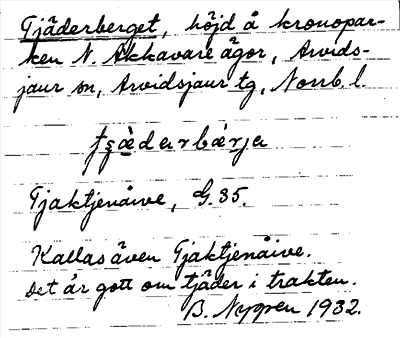 Tjäderberget, höjd å kronopar-
ken N. Akkavare ägor, Arvids-
jaur sn, Arvidsjaur tg, Norrb. l.
Tjaktjenåive, G.35.
Kallas även Tjaktjenåive.
Det är gott om tjäder i trakten.
B. Nyppen 1932.